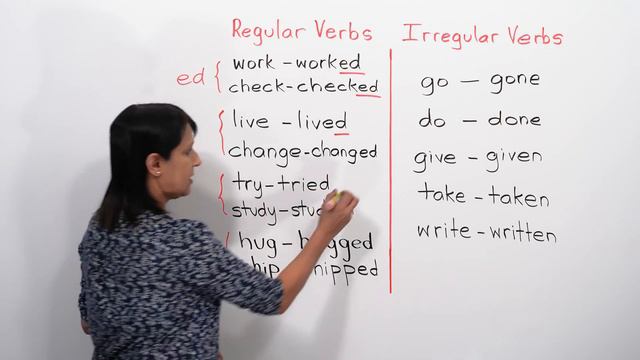 Regular Verbs
ed
work - worked
check - checked
live - lived
change - changed
try - tried
study -
hug -
Irregular Verbs
go - gone
do - done
give - given
take - taken
write - written